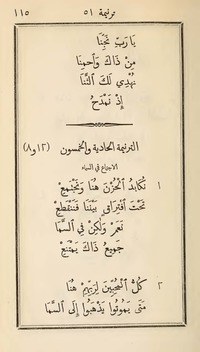 ترنيمة ٥١ ١١٥
يَا رَبِّ نَجِّنَا
مِنْ ذَاكَ وَٱحْمِنَا
نُهْدِي لَكَ ٱلثَّنَا
إِذْ نَمْدَحُ
الترنيمة الحادية والخمسون (١٢ و٨)
الاجتماع في السماء
١ نُكَابِدُ ٱلْحُزْنَ هُنَا وَنَجْتَمِعْ
تَحْتَ ٱفْتِرَاقٍ بَيْنَنَا فَنَنْقَطِعْ
نَعَمْ وَلٰكِنْ فِي ٱلسَّمَا
جَمِيعُ ذَاكَ يَمْتَنِعْ
٢ كُلُّ ٱلْمُحِبِّينَ لِرَبِّهِمْ هُنَا
مَتَى يَمُوتُوا يَذْهَبُوا إِلَى ٱلسَّمَا